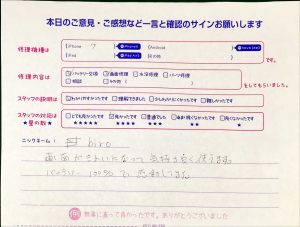 本日のご意見・ご感想など一言と確認のサインお願いします
修理機種は
iPhone 7
Android
iPad
その他
修理内容は
バッテリー交換 画面修理 水没修理 パーツ修理
その他
をしてもらいました。
スタッフの説明は
わかりやすかったです 理解できました 少しわかりにくかったです 難しかったです
スタッフの対応は
★星の数★
とても良かったです 良かったです 普通でした 良くなかったです
★★★★★ ★★★★ ★★★ ★★ ★
ニックネーム: hiro
画面がきれいになって気持ち良く使えます
バッテリー 100%で
無事に直って良かったです。ありがとうございました